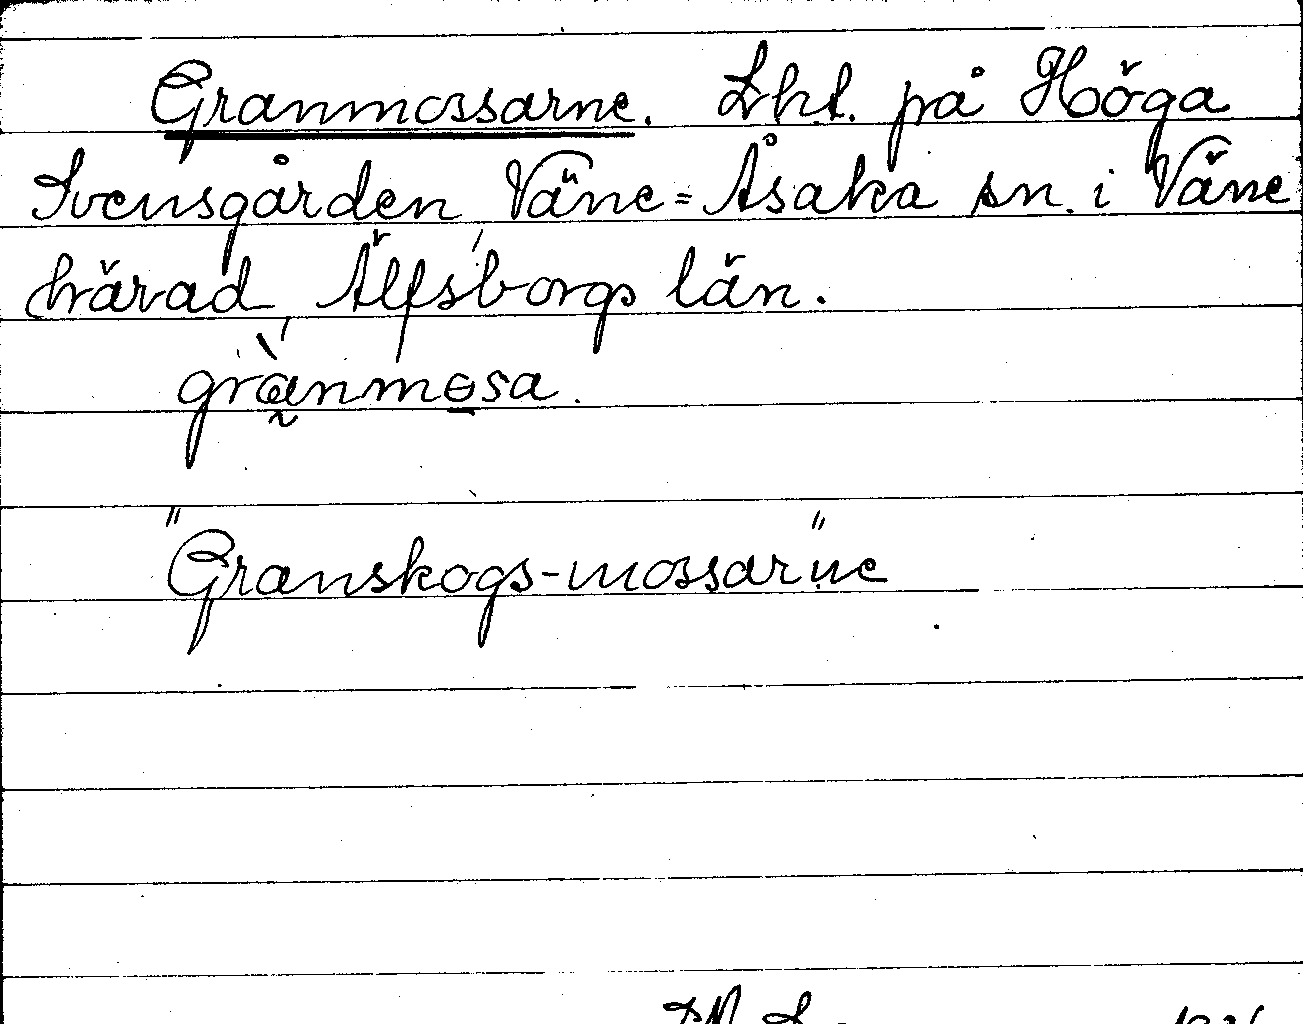 Granmossarne. Lht. på Höga
Svensgården Väne=Åsaka sn. i Väne
härad, Älfsborgs län.
grànmɵsa.
"Granskogs-mossarne"